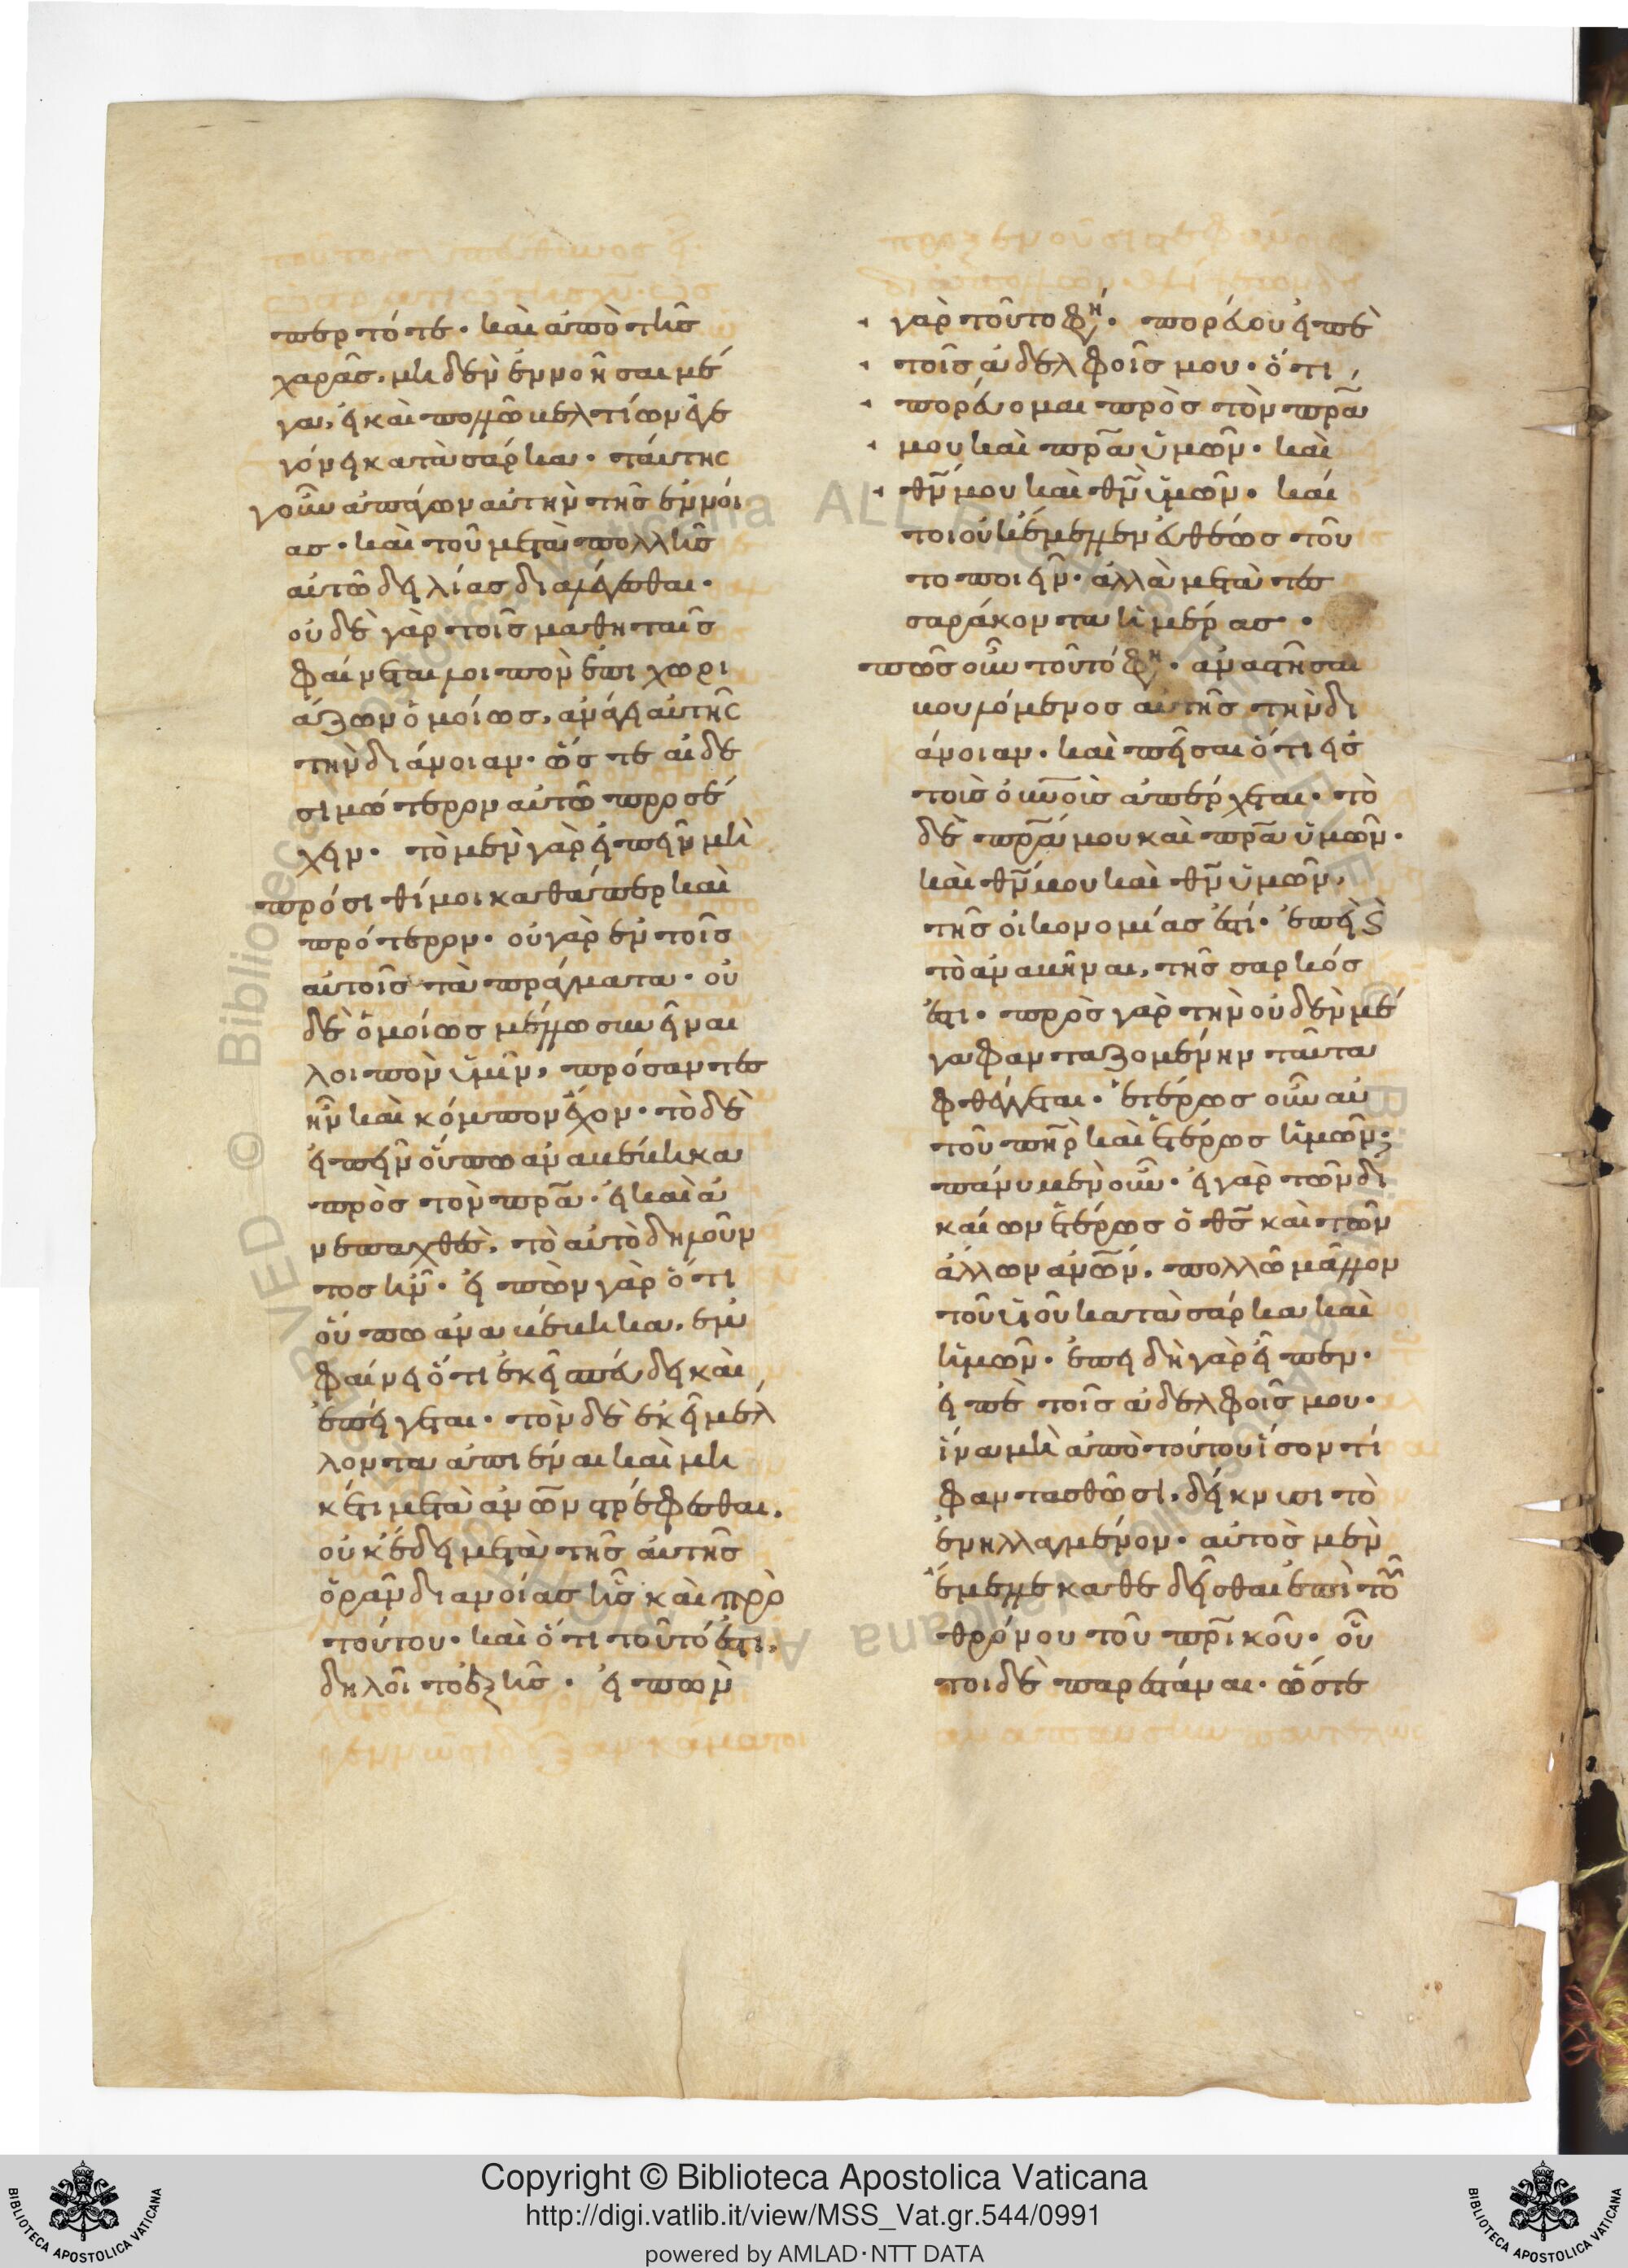 περ τότε· καὶ ἀπὸ τῆς
χαρᾶς, μηδὲν ἐννοῆσαι μέ
γα, εἰ καὶ πολλῷ βελτίων ἐγε
γόνει κατὰ σάρκα· ταύτης
γοῦν ἀπάγων αὐτὴν τῆς ἐννοί
ας· καὶ τοῦ μετὰ πολλῆς
αὐτῷ δηλίας διαλέγεσθαι·
οὐδὲ γὰρ τοῖς μαθηταῖς
φαίνεται λοιπὸν ἐπιχωρι
άζων ὁμοίως, ἀνάγει αὐτῆς
τὴν διάνοιαν· ὥστε αἰδε
σιμώτερον αὐτῷ προσέ
χειν· τὸ μὲν γὰρ εἰπεῖν μὴ
πρόσιθί μοι καθάπερ καὶ
πρότερον· οὐ γὰρ ἐν τοῖς
αὐτοῖς τὰ πράγματα· οὐ
δὲ ὁμοίως μέλλω συνεῖναι
λοιπὸν ὑμῖν, πρόσαντες
ἦν καὶ κόμπον ἔχον· τὸ δὲ
εἰπεῖν οὔπω ἀναβέβηκα
πρὸς τὸν πρα· εἰ καὶ ἀ
νεπαχθὲς, τὸ αὐτὸ δηλοῦν
τος ἦν· εἰπὼν γὰρ ὅτι
οὔπω ἀναβέβηκα, ἐμ
φαίνει ὅτι ἐκεῖ σπεύδει καὶ
ἐπείγεται· τὸν δὲ ἐκεῖ μέλ
λοντα ἀπιέναι καὶ μη
κέτι μετὰ ανων στρέφεσθαι,
οὐκ ἔδει μετὰ τῆς αὐτῆς
ὁρᾶν διανοίας ἧς καὶ πρὸ
τούτου· καὶ ὅτι τοῦτό ἐστι,
δηλοῖ τὸ ἑξῆς· εἰπὼν
γὰρ τοῦτο φη· πορεύου εἰπὲ
τοῖς ἀδελφοῖς μου· ὅτι
πορεύομαι πρὸς τὸν πρα
μου καὶ πρα ὑμῶν· καὶ
θν μου καὶ θν ὑμῶν· καί
τοι οὐκ ἔμελλεν εὐθέως τοῦ
το ποιεῖν· ἀλλὰ μετὰ τεσ
σαράκοντα ἡμέρας·
πῶς οὖν τοῦτό φη· ἀναστῆσαι
βουλόμενος αὐτῆς τὴν δι
άνοιαν· καὶ πεῖσαι ὅτι εἰς
τοὺς ουνους ἀπέρχεται· τὸ
δὲ πρα μου καὶ πρα ὑμῶν·
καὶ θν μου καὶ θν ὑμῶν,
τῆς οἰκονομίας ἐστί· ἐπεὶ καὶ
τὸ ἀναβῆναι, τῆς σαρκός
ἐστι· πρὸς γὰρ τὴν οὐδὲν μέ
γα φανταζομένην ταῦτα
φθέγγεται· ἑτέρως οὖν αὐ
τοῦ πηρ καὶ ἑτέρως ἡμῶν;
πάνυ μὲν οὖν· εἰ γὰρ τῶν δι
καίων ἑτέρως ὁ θς καὶ τῶν
ἄλλων ανων, πολλῷ μᾶλλον
τοῦ υἱοῦ κατὰ σάρκα καὶ
ἡμῶν· ἐπειδὴ γὰρ εἶπεν·
εἰπὲ τοῖς ἀδελφοῖς μου·
ἵνα μὴ ἀπὸ τούτου ἴσον τί
φαντασθῶσι, δείκνυσι τὸ
ἐνηλλαγμένον· αὐτὸς μὲν
ἔμελλε καθεδεῖσθαι ἐπὶ τοῦ
θρόνου τοῦ πρικοῦ· οὗ
τοι δὲ παρεστάναι· ὥστε
Copyright © Biblioteca Apostolica Vaticana
http://digi.vatlib.it/view/MSS_Vat.gr.544/0991
powered by AMLAD·NTT DATA
BIBLIOTECA APOSTOLICA VATICANA
BIBLIOTECA APOSTOLICA VATICANA